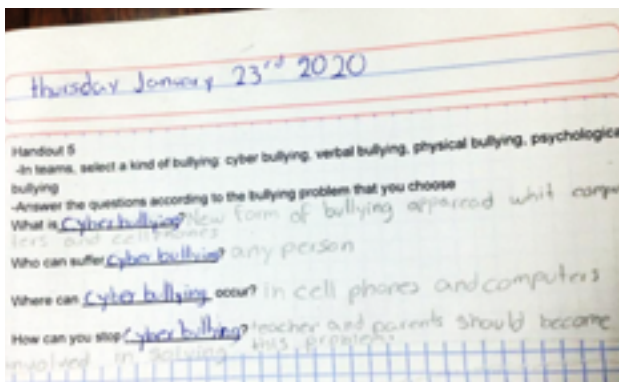 thursday January 23rd 2020
Handout 5
-In teams, select a kind of bullying: cyber bullying, verbal bullying, physical bullying, psychologica
bullying
-Answer the questions according to the bullying problem that you choose
What is Cyber bullying? New form of bullying apparead whit compu
ters and cellphones
Who can suffer cyber bullying? any person
Where can cyber bullying occur? in cell phones and computers
How can you stop cyber bulling? teacher and parents should become
involved in solving this problem.